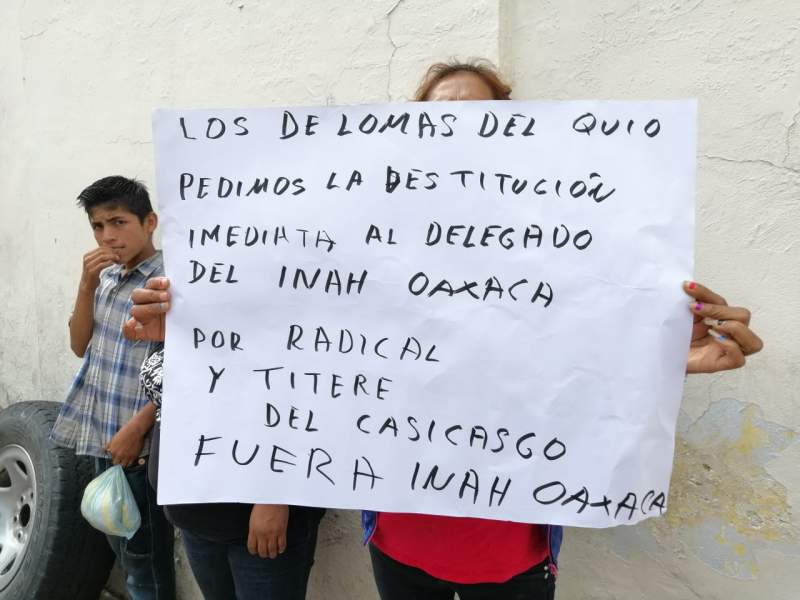 LOS DE LOMAS DEL QUIO
PEDIMOS LA DESTITUCIÓN
IMEDIATA AL DELEGADO
DEL INAH OAXACA
POR RADICAL
Y TITERE
DEL CASICASGO
FUERA INAH OAXACA